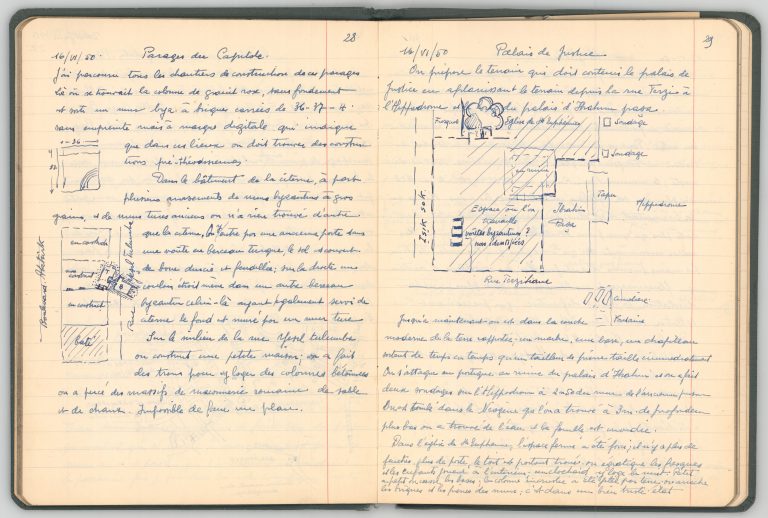 28
16/VI/50. Parages du Capitole.
J'ai parcouru tous les chantiers de construction de ces parages
là où se trouvait la colonne de granit rose, sans fondement
et sorti un mur byz. à briques carrées de 36-37-4
sans empreinte mais à marque digitale qui indique
que dans ces lieux on doit trouver des construc
tions pré-théodosiennes.
Dans le bâtiment de la citerne, à part
plusieurs de murs byzantins à gros
grains, et de murs turcs anciens on n'a rien trouvé d'autre
que la citerne, On entre par une ancienne porte sous
une voûte en berceau turque, le sol est couvert
de boue durcie et fendillée; sur la droite une
couloir étroit mène dans un autre berceau
byzantin celui-là ayant également servi de
citerne le fond est muré par un mur turc
Sur le milieu de la rue Yesil tulumba
on construit une petite maison; on a fait
des trous pour y loger des colonnes bétonnées
on a percé des massifs de maçonnerie romaine de sable
et de chaux. Impossible de faire un plan.
36
en construct
en construct
en construct
bâti
Boulevard Atatürk
Rue Yesil tulumba
29
16/VI/50 Palais de Justice
On prépare le terrain qui doit contenir le palais de
Justice en aplanissant le terrain depuis la rue Terzis à
l'Hippodrome et du palais d'Ibrahim pasa.
Fresques
Eglise de Ste Euphémie
Sondage
Sondage
en ruine
Tapu
Hippodrome
Isik sok.
Espace où l'on
travaille
voûtes byzantines?
non identifiées
Ibrahim
Pasa
Rue Terzihane
Fontaine
Jusqu'à maintenant on est dans la couche
moderne de la terre rapportée; un marbre, une base, un chapiteau
sortent de temps en temps qu'un tailleur de pierre taille immédiatement
On s'attaque au portique en ruine du palais d'Ibrahim et on a fait
deux sondages sur l'Hippodrome à 2m50 du mur de
On est tombé dans le Néogène qu'on a trouvé à 3m. de profondeur
plus bas on a trouvé de l'eau et la fouille est inondée.
Dans l'église de Ste Euphémie, l'espace fermé a été forcé; il n'y a plus de
fenêtres, plus de porte, le toit est partout troué, on égratigne les fresques
et les enfants jouent à l'intérieur; un clochard y loge la nuit. Petit
à petit on casse les bases; la colonne incrustée a été jetée par terre; on arrache
les briques et les pierres des murs; c'est dans un bien triste état